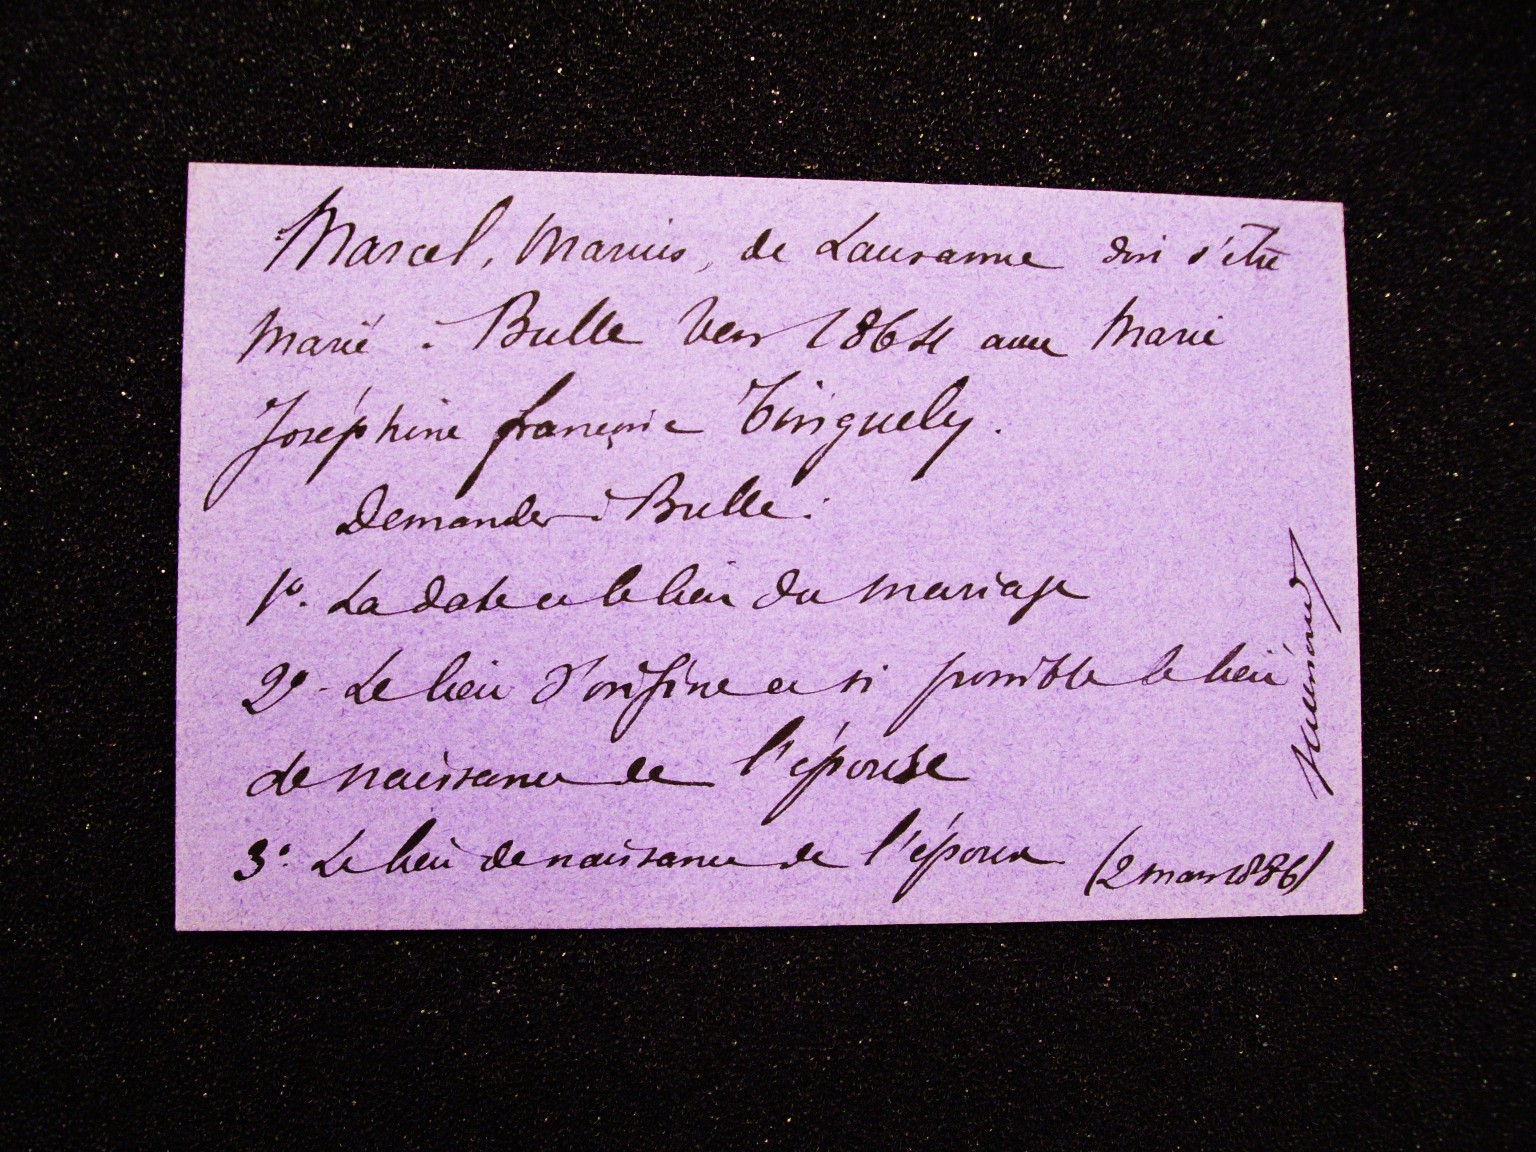 Marcel, Marius, de Lausanne doit s'être
Marié à Bulle vers 1864 avec Marie
Joséphine françoise Tinguely.
Demander à Bulle :
1º. La date et le lieu du mariage
2º. Le lieu d'origine et si possible le lieu
de naissance de l'épouse
3º. Le lieu de naissance de l'époux (2 mars 1886)